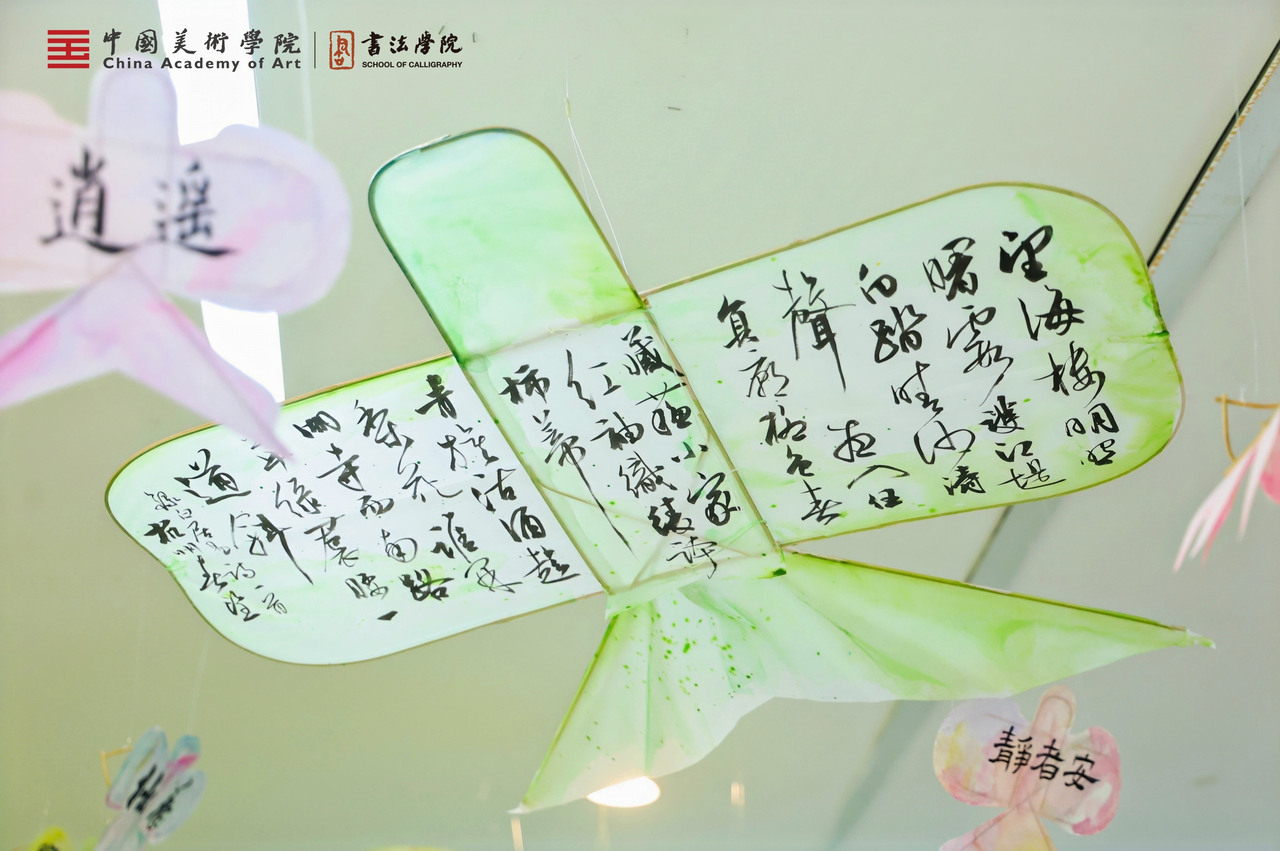 中國美術學院
China Academy of Art
書法學院
SCHOOL OF CALLIGRAPHY
逍遥
望海樓明照
曙霞護江堤
白踏晴沙濤
聲夜入伍
員廟柳色春
藏蘇小家
紅袖織綾誇
柿蒂
青旗沽酒趁
梨花誰開
湖寺西南路
草綠裙腰一
道斜
錄白居易詩一首
杭州春望
靜者安